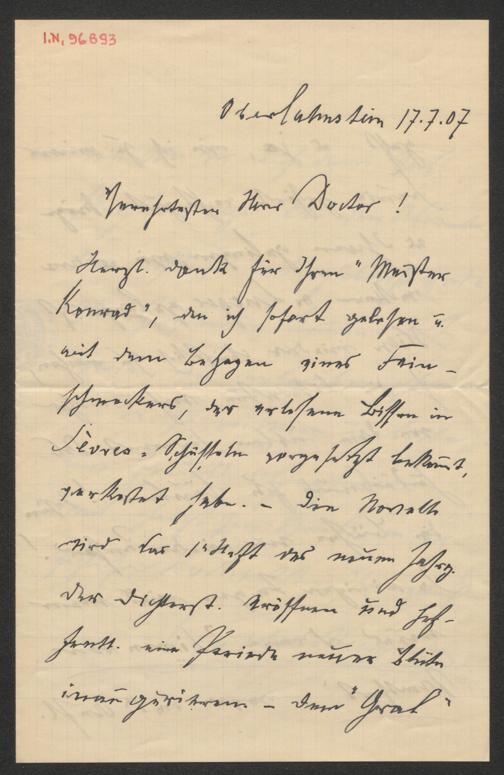 I.N. 96893
Oberlahnstein 17.7.07
Verehrtester Herr Doctor!
Herzl. Dank für Ihren "Meister
Konrad", den ich sofort gelesen u.
mit dem Behagen eines Fein-
schmeckers, der erlesene Bissen in
Sèvres-Schüsseln vorgesetzt bekommt,
verkostet habe. – Die Novelle
wird das 1. Heft des neuen Jahrg.
der Dichterst. eröffnen und hof-
fentl. eine Periode neuer Blüte
inaugurieren – dem "Gral"